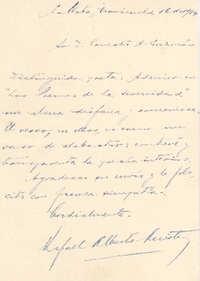 La Plata, Noviembre 16 de 19
Sr. D. Ernesto A. Guzmán
Distinguido poeta: Admiro en
"Los Poemas de la serenidad"
un alma diáfana y armoniosa.
El verso, en ellos, es como un
vaso de alabastro: contiene y
transparenta la poesía interior.
Agradezco su envío y le felicito
con franca simpatía.
Cordialmente.
Rafael Alberto Arrieta